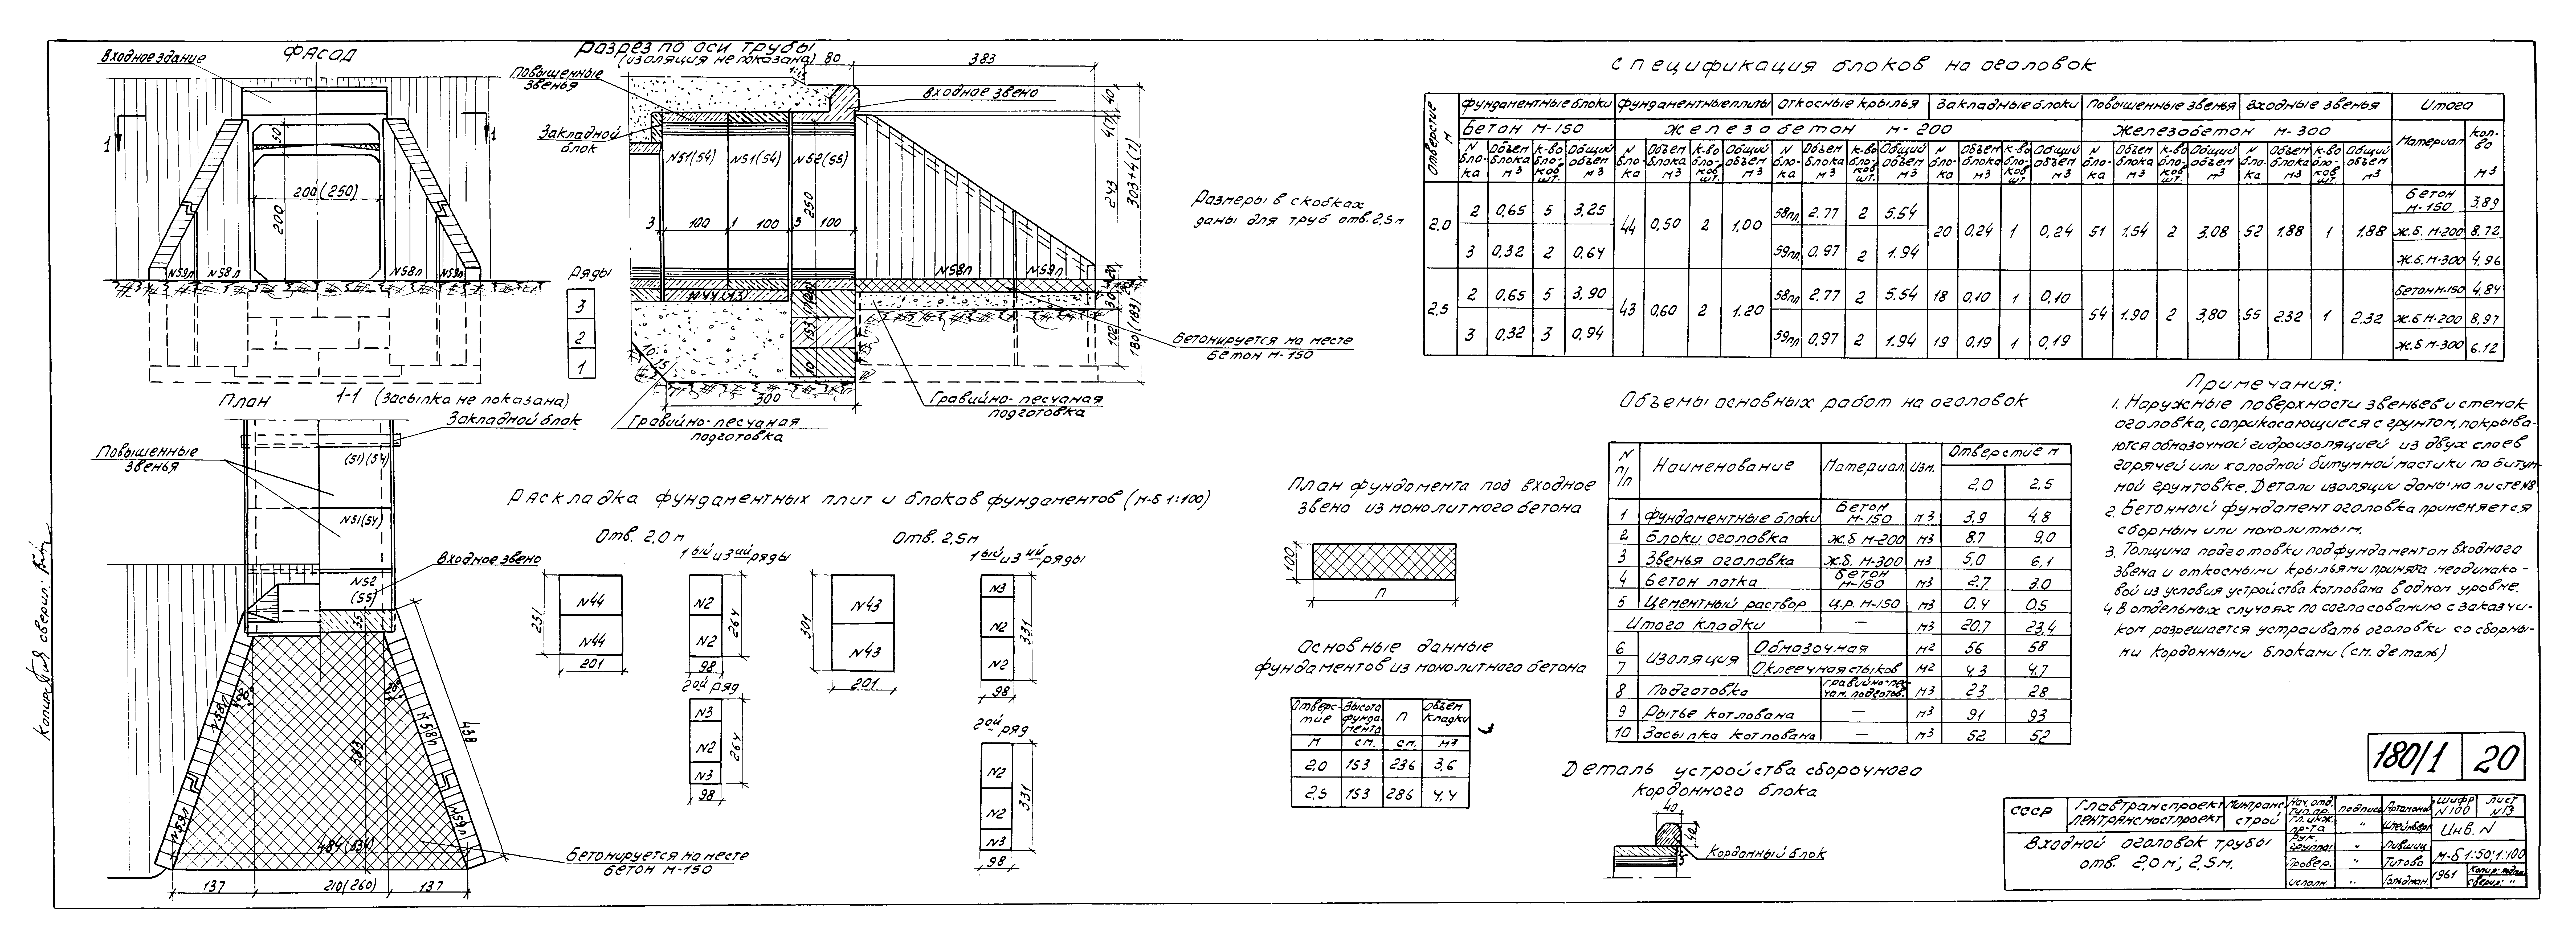 ФАСАД
Входное здание
1
1
50
200(250)
200
N59л
N58л
N58л
N59л
Разрез по оси трубы
(изоляция не показана)
80
383
Повышенные
звенья
входное звено
Закладной
блок
N51(54)
N51(54)
N52(55)
40
4(7)
243
303+4(7)
250
3
100
1
100
100
N58л
N59л
20
30
102
180(183)
153
10
300
Ряды
3
2
1
Бетонируется на месте
бетон М-150
Гравийно-песчаная
подготовка
Гравийно-песчаная
подготовка
Размеры в скобках
даны для труб отв. 2,5м
План
1-1 (Засыпка не показана)
Закладной блок
(51)(54)
Повышенные
звенья
N51(54)
Входное звено
N52
(55)
35
20°
20°
N58л
N58л
438
383
N59л
N59л
484(534)
Бетонируется на месте
бетон М-150
137
210(260)
137
Раскладка фундаментных плит и блоков фундаментов (м-б 1:100)
Отв. 2,0 м
1ый из 3ий ряды
N44
N44
251
201
N2
N2
264
98
2ой ряд
N3
N2
N3
264
98
Отв. 2,5м
1ый из 3ий ряды
N43
N43
301
201
N3
N2
N2
331
98
2ой ряд
N2
N2
N3
331
98
План фундамента под входное
звено из монолитного бетона
100
п
Основные данные
фундаментов из монолитного бетона
Отверстие Высота фундамента п Объем кладки
м см. см. м3
2,0 153 236 3,6
2,5 153 286 4,4
Спецификация блоков на оголовок
Отверстие м
Фундаментные блоки Фундаментные плиты Откосные крылья Закладные блоки Повышенные звенья Входные звенья Итого
Бетон М-150 Железобетон М-200 Железобетон М-300 Материал Кол-во м3
N блока Объем блока м3 к-во блоков шт. Общий объем м3 N блока Объем блока м3 к-во блоков шт. Общий объем м3 N блока Объем блока м3 к-во блоков шт. Общий объем м3 N блока Объем блока м3 к-во блоков шт. Общий объем м3 N блока Объем блока м3 к-во блоков шт. Общий объем м3 N блока Объем блока м3 к-во блоков шт. Общий объем м3
2,0 2 0,65 5 3,25 44 0,50 2 1,00 58пл 2.77 2 5.54 20 0,24 1 0,24 51 1.54 2 3,08 52 1.88 1 1.88 Бетон М-150 3.89
3 0,32 2 0,64 59пл 0,97 2 1.94 Ж.б. М-200 8,72
Ж.б. М-300 4,96
2,5 2 0,65 5 3,90 43 0,60 2 1.20 58пл 2,77 2 5.54 18 0,10 1 0,10 54 1.90 2 3,80 55 2.32 1 2.32 Бетон М-150 4,84
3 0,32 3 0,94 59пл 0,97 2 1.94 19 0,19 1 0,19 Ж.б М-200 8,97
Ж.б М-300 6.12
Объемы основных работ на оголовок
N п/п Наименование Материал Изм. Отверстие м
2,0 2,5
1 Фундаментные блоки Бетон М-150 м3 3.9 4,8
2 Блоки оголовка Ж.б М-200 м3 8.7 9.0
3 Звенья оголовка Ж.б. М-300 м3 5.0 6,1
4 Бетон лотка Бетон М-150 м3 2.7 3.0
5 Цементный раствор Ц.р. М-150 м3 0.4 0,5
Итого кладки — м3 20.7 23,4
6 Изоляция Обмазочная м2 56 58
7 Оклеечная стыков м2 4.3 4.7
8 Подготовка Гравийно-песчан. подготов. м3 23 28
9 Рытье котлована — м3 91 93
10 Засыпка котлована — м3 52 52
Примечания:
1. Наружные поверхности звеньев и стенок
оголовка, соприкасающиеся с грунтом, покрыва-
ются обмазочной гидроизоляцией из двух слоев
горячей или холодной битумной мастики по битум-
ной грунтовке. Детали изоляции даны на листе N8
2. Бетонный фундамент оголовка применяется
сборным или монолитным.
3. Толщина подготовки под фундаментом входного
звена и откосными крыльями принята неодинако-
вой из условия устройства котлована в одном уровне.
4 В отдельных случаях по согласованию с заказчи-
ком разрешается устраивать оголовки со сборны-
ми кордонными блоками (см. деталь)
Деталь устройства сборочного
кордонного блока
40
40
Кордонный блок
180/1 20
СССР Главтранспроект Лентрансмостпроект Минтрансстрой
Входной оголовок трубы
отв. 2.0 м; 2,5м.
Нач. отд. тип. пр. подпись Артамонов
Гл. инж. пр-та " Штейнберг
Рук. группы " Лившиц
Провер. " Титова
Исполн. " Гольдман
Шифр N100
лист N13
Инв. N
М-б 1:50; 1:100
1961